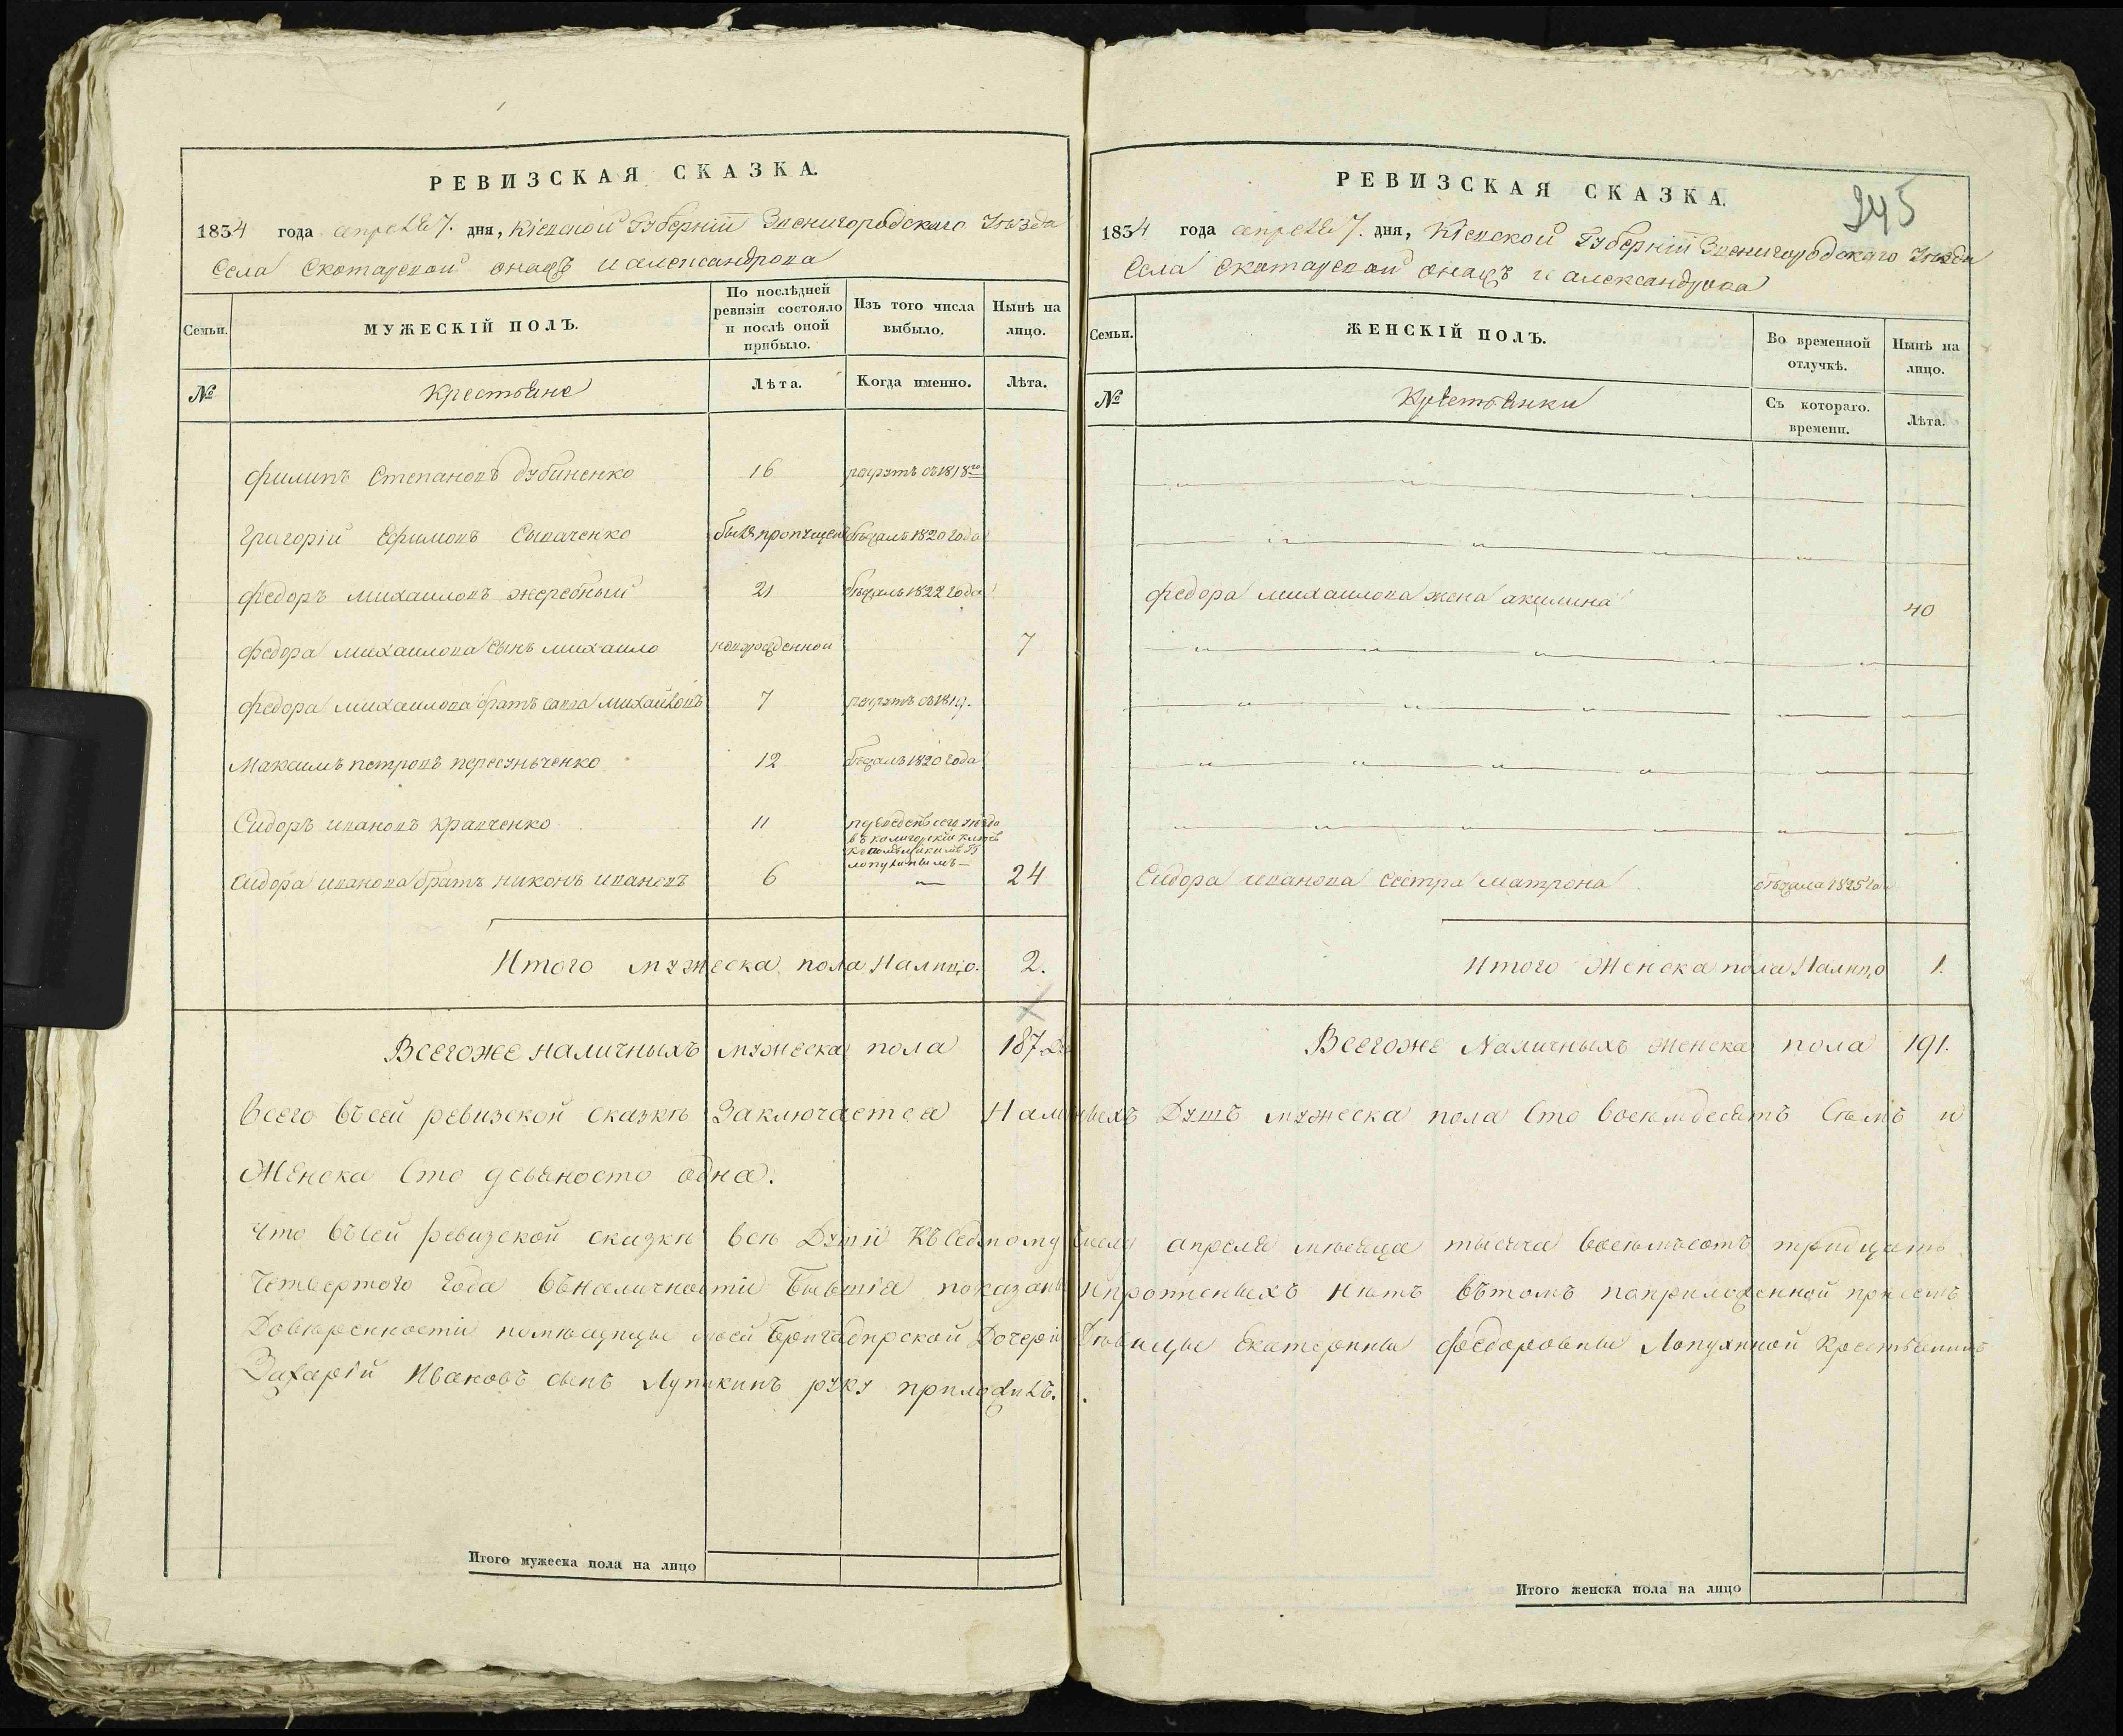 РЕВИЗСКАЯ СКАЗКА.
1834 года апреля 7. дня, Кіевской Губерніи Звенигородскаго Уѣзда
Села Скотаревой онаяжъ и александрова
Семьи.
МУЖЕСКІЙ ПОЛЪ.
По послѣдней ревизіи состояло и послѣ оной прибыло.
Изъ того числа выбыло.
Нынѣ на лицо.
№
Крестьяне
Лѣта.
Когда именно.
Лѣта.
филипъ Степановъ дубиненко 16 рекрутъ въ 1818го
Григорій Ефимовъ Сываченко былъ пропущенъ бѣжалъ 1820 года
федоръ михаиловъ жеребный 21 бѣжалъ 1822 года
федора михаилова сынъ михаило новорожденной 7
федора михаилова братъ савва михайловъ 7 рекрутъ въ 1819.
Максимъ петровъ 12 бѣжалъ 1820 года
Сидоръ ивановъ кравченко 11 переведенъ сего уѣзда
въ ключъ
лопухинымъ —
Сидора иванова братъ никонъ ивановъ 6 — 24
Итого мужеска пола На лицо. 2.
Всегоже наличныхъ мужеска пола 187.
РЕВИЗСКАЯ СКАЗКА.
245
1834 года апреля 7. дня, Кіевской Губерніи Звенигородскаго Уѣзда
Села Скотаревой онаяжъ и александрова
Семьи.
ЖЕНСКІЙ ПОЛЪ.
Во временной отлучкѣ.
Нынѣ на лицо.
№
Крестьянки
Съ котораго. времени.
Лѣта.
федора михаилова жена акилина 40
Сидора иванова сестра матрона бѣжала 1825 го
Итого Женска пола На лицо 1.
Всегоже Наличныхъ женска пола 191.
Всего въ сей ревизской сказкѣ Заключается Наличныхъ Душъ мужеска пола Сто восемдесятъ Семъ и
Женска Сто девяносто одна.
что въ сей ревизской сказкѣ всѣ Души Къ Седмому Числу апреля мѣсяца тысяча восемъсотъ тридцатъ
Четвертого Года въ наличности Бывшія показаны и пропшеныхъ нѣтъ вътомъ поприложенной при семъ
Довѣренности помѣщицы моей Бригадирской Дочери Дѣвицы Екатерины Феодоровны Лопухиной Крестьянинъ
Захарій Ивановъ сынъ Лупикинъ руку приложилъ.
Итого мужеска пола на лицо
Итого женска пола на лицо